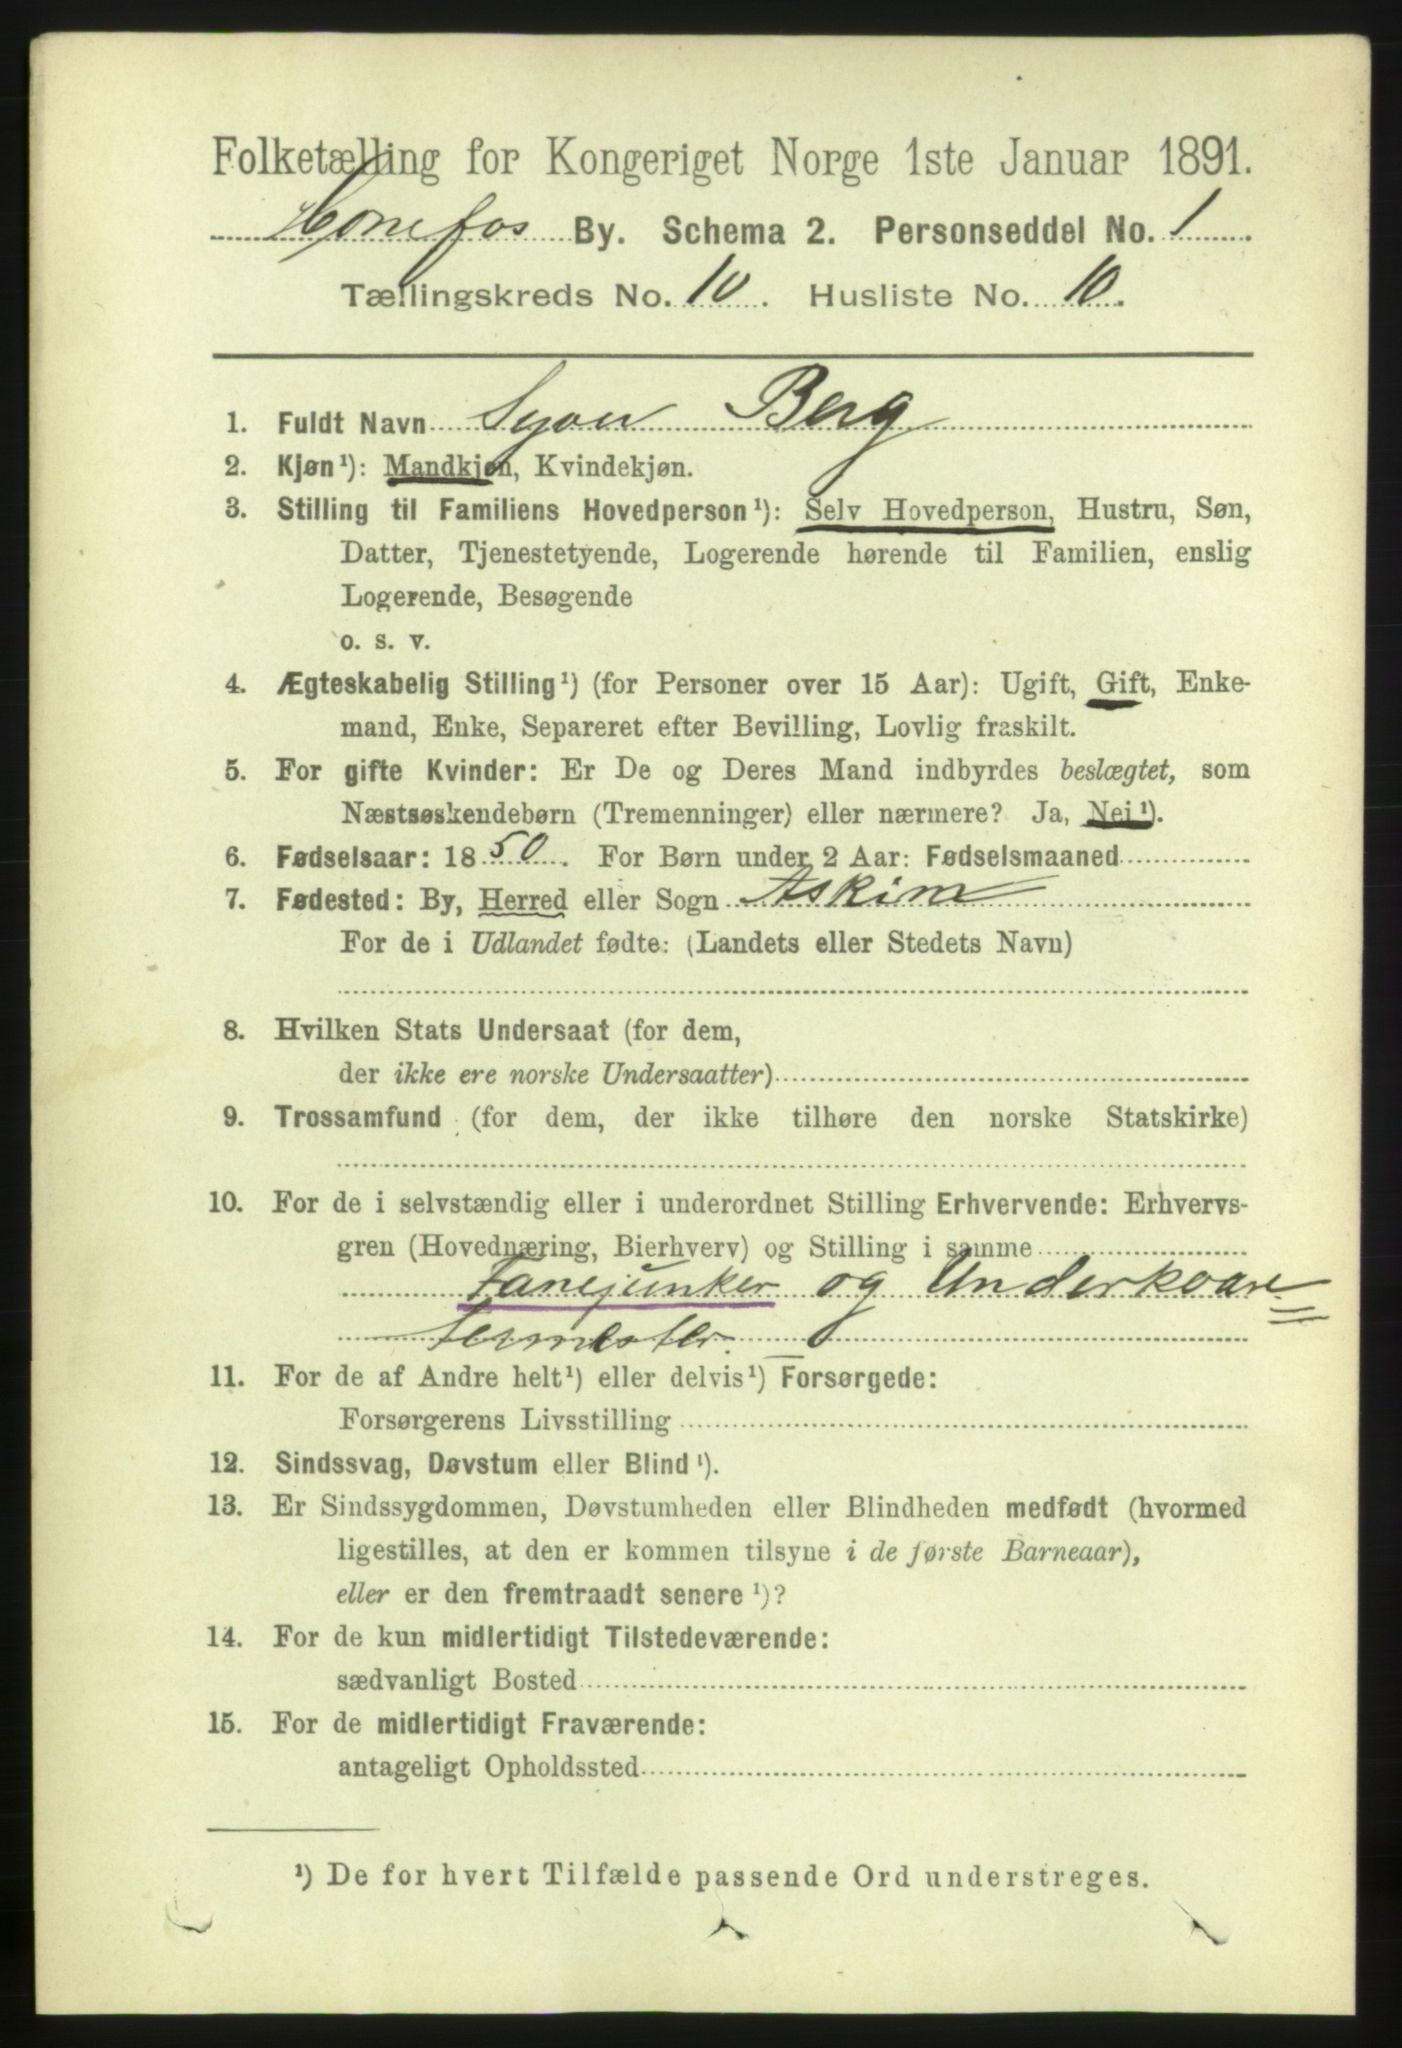 Folketælling for Kongeriget Norge 1ste Januar 1891.
Hønefos By. Schema 2. Personseddel No. 1
Tællingskreds No. 10. Husliste No. 10.
1. Fuldt Navn Syver Berg
2. Kjøn¹): Mandkjøn, Kvindekjøn.
3. Stilling til Familiens Hovedperson¹): Selv Hovedperson, Hustru, Søn,
Datter, Tjenestetyende, Logerende hørende til Familien, enslig
Logerende, Besøgende
o. s. v.
4. Ægteskabelig Stilling¹) (for Personer over 15 Aar): Ugift, Gift, Enke-
mand, Enke, Separeret efter Bevilling, Lovlig fraskilt.
5. For gifte Kvinder: Er De og Deres Mand indbyrdes beslægtet, som
Næstsøskendebørn (Tremenninger) eller nærmere? Ja, Nei¹).
6. Fødselsaar: 1850. For Børn under 2 Aar: Fødselsmaaned
7. Fødested: By, Herred eller Sogn Askim
For de i Udlandet fødte: (Landets eller Stedets Navn)
8. Hvilken Stats Undersaat (for dem,
der ikke ere norske Undersaatter)
9. Trossamfund (for dem, der ikke tilhøre den norske Statskirke)
10. For de i selvstændig eller i underordnet Stilling Erhvervende: Erhvervs-
gren (Hovednæring, Bierhverv) og Stilling i samme
Fanejunker og Underkvar=
termester.
11. For de af Andre helt¹) eller delvis¹) Forsørgede:
Forsørgerens Livsstilling
12. Sindssvag, Døvstum eller Blind¹).
13. Er Sindssygdommen, Døvstumheden eller Blindheden medfødt (hvormed
ligestilles, at den er kommen tilsyne i de første Barneaar),
eller er den fremtraadt senere¹)?
14. For de kun midlertidigt Tilstedeværende:
sædvanligt Bosted
15. For de midlertidigt Fraværende:
antageligt Opholdssted
¹) De for hvert Tilfælde passende Ord understreges.